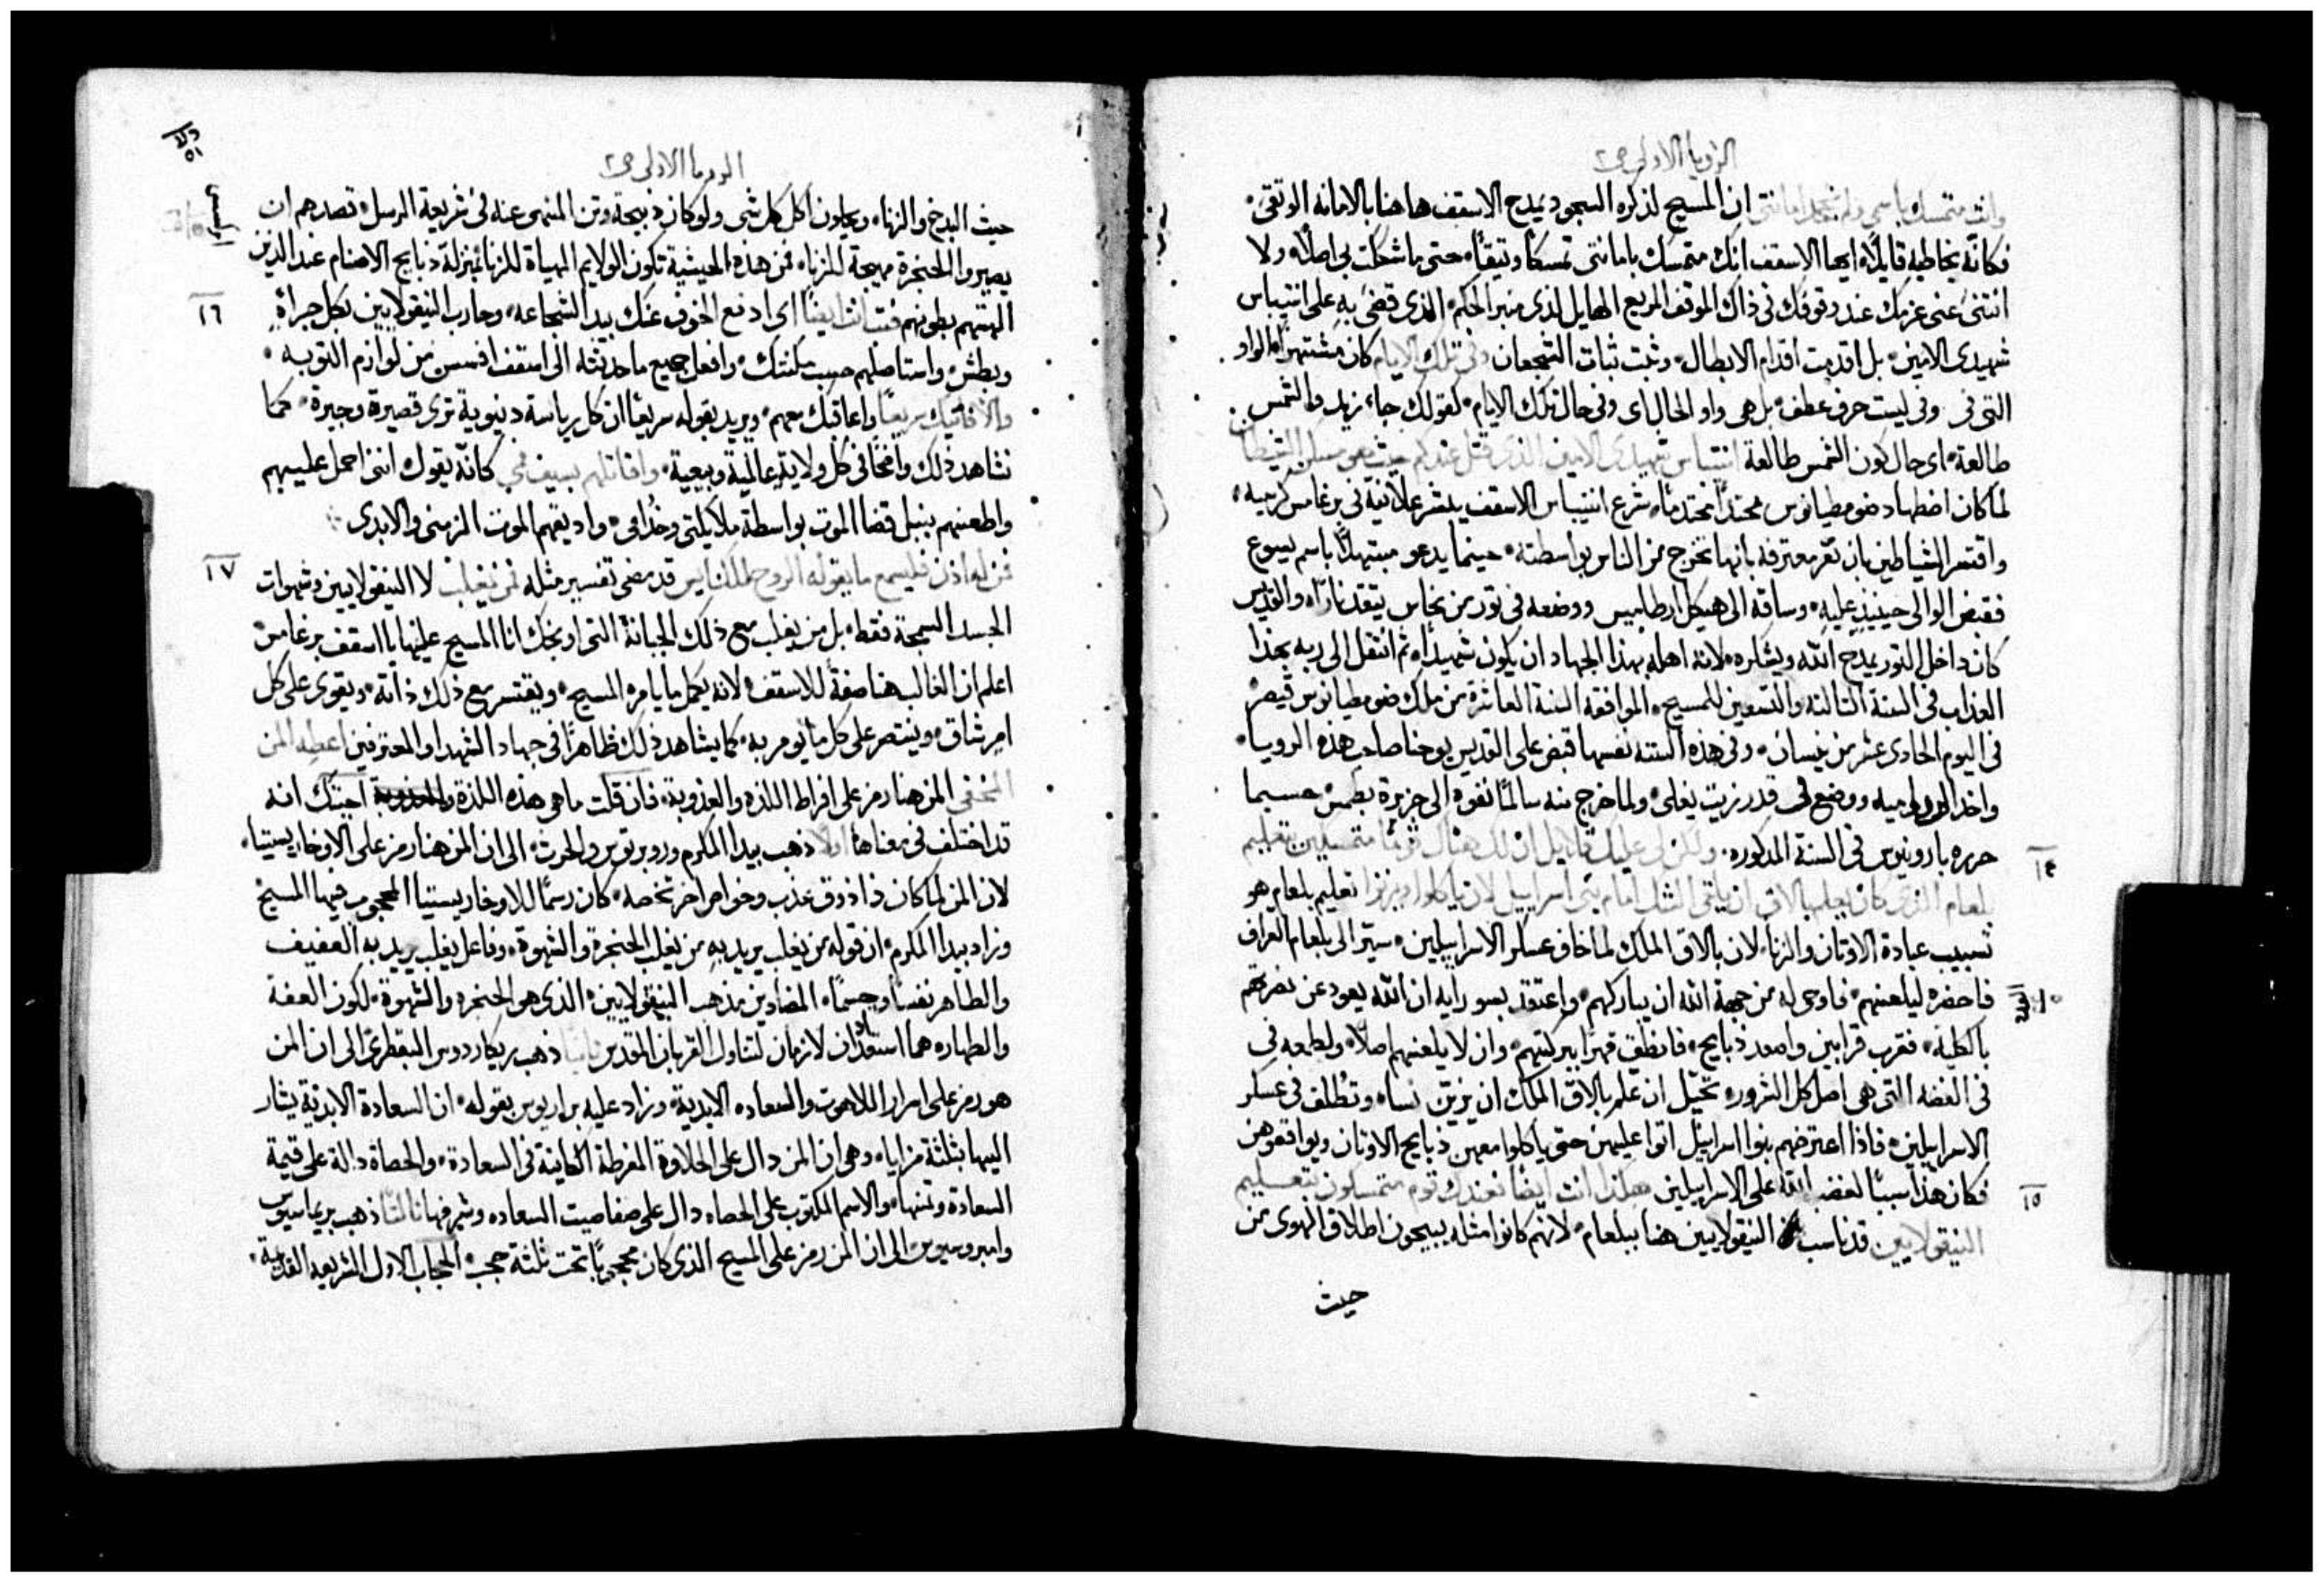 الرويا الاولى ص٢
وانت متمسك باسمي ولم تجحد امانتي ان المسيح لذكره السجود يمدح الاسقف هاهنا بالامانه الوثقى
فكانه يخاطبه قايلاً ايها الاسقف انك متمسك بامانتي تمسكاً وثيقاً حتى ما شككت بي اصلاً ولا
انثنى عني عزمك عند وقوفك في ذاك الموقف المريع الهايل لذى منبر الحكم الذي قضى به على انتيباس
شهيدي الامين بل اقدمت اقدام الابطال وثبت ثبات الشجعان وفي تلك الايام كان مشتهراً الواو
التي في وفي ليست حرف عطف بل هي واو الحال اى وفي حال تلك الايام كقولك جاء زيد والشمس
طالعة اى حال كون الشمس طالعة انتيباس شهيدي الامين الذي قتل عندكم حيث هو مسكن الشيطان
لما كان اضطهاد ضوميطيانوس محتداً محتدماً شرع انتيباس الاسقف يبشر علانية في برغامس كرسيه
واقتسر الشياطين بان تقر معترفه بانها تخرج من الناس بواسطته حينما يدعو مبتهلاً باسم يسوع
فقبض الوالى حينيذٍ عليه وساقه الى هيكل ارطاميس ووضعه في ثور من نحاس يتقد ناراً والقديس
كان داخل الثور يمدح الله ويشكره لانه اهله بهذا الجهاد ان يكون شهيداً ثم انتقل الى ربه بهذا
العذاب في السنة الثالثة والتسعين للمسيح الموافقه السنة العاشرة من ملك ضوميطيانوس قيصر
في اليوم الحادى عشر من نيسان وفي هذه السنة نفسها قبض على القديس يوحنا صاحب هذه الرويا
واخذ الى روميه ووضع في قدر زيت يغلى ولما خرج منه سالماً نفوه الى جزيرة بطمس حسبما
حرره بارونيوس في السنة المذكوره ولكن لي عليك قلايل ان لك هناك قوماً متمسكين بتعليم
١٤
بلعام الذي كان يعلم بالاق ان يلقى الشك امام بني اسراييل لان ياكلوا ويزنوا تعليم بلعام هو
تسبيب عبادة الاوثان والزنا لان بالاق الملك لما خاف عسكر الاسراييلين سير الى بلعام العراف
فاحضره ليلعنهم فاوحى له من جهة الله ان يباركهم واعتقد بسو رايه ان الله يعود عن نصرتهم
بالكلية فقرب قرابين واصعد ذبايح فانطق قهراً ببركتهم وان لا يلعنهم اصلاً ولطمعه في
في الفضه التي هي اصل كل الشرور تحيّل ان علم بالاق الملك ان يزين نساه وتطلق في عسكر
الاسراييلين فاذا اعترضهم بنوا اسراييل اتوا عليهن حتى ياكلوا معهن ذبايح الاوثان ويواقعوهن
فكان هذا سبباً لغضب الله على الاسراييلين هكذا انت ايضاً عندك قوم متمسكون بتعليم
١٥
النيقولايين قد ناسب النيقولايين هنا ببلعام لانهم كانوا مثله يبيحون اطلاق الهوى من
حيث
الرويا الاولى ص٢
حيث البذخ والزنا ويحلون اكل كل شى ولو كان ذبيحة وثن المنهى عنه في شريعة الرسل قصدهم ان
يصيروا الحنجرة مهيجة للزنا فمن هذه الحيثية تكون الولايم المهياة للزنا بمنزلة ذبايح الاصنام عند الذين
الهتهم بطونهم فتب انت ايضاً اى ادفع الخوف عنك بيد الشجاعه وحارب النيقولايين بكل جراة
١٦
وبطش واستاصلهم حسب مكنتك وافعل جميع ما حدثته الى اسقف افسس من لوازم التوبه
والا فاتيك سريعاً واعاقبك معهم ويريد بقوله سريعاً ان كل رياسة دنيوية ترى قصيرة وجيزة كما
نشاهد ذلك واضحاً في كل ولاية عالمية وبيعية واقاتلهم بسيف فمي كانه يقول انني احمل عليهم
واطعنهم بنبل قضا الموت بواسطة ملايكتي وخدامي واذيقهم الموت الزمني والابدى
من له اذن فليسمع ما يقوله الروح للكنايس قد مضى تفسير مثله من يغلب لا النيقولايين وشهوات
١٧
الجسد السمجة فقط بل من يغلب مع ذلك الجبانة التي اوبخك انا المسيح عليها يا اسقف برغامس
اعلم ان الغالب هنا صفة للاسقف لانه يكمل ما يامره المسيح ويقتسر مع ذلك ذاته ويقوى على كل
امر شاق وينتصر على كل ما يومر به كما يشاهد ذلك ظاهراً في جهاد الشهدا والمعترفين اعطه المن
المخفي المن هنا رمز على افراط اللذه والعذوبة فان قلت ما هي هذه اللذة اجبتك انه
قد اختلف في معناها اولاً ذهب بيدا المكرم وروبرتوس والحرث الى ان المن هنا رمز على الاوخاريستيا
لان المن لما كان ذا ذوق عذب وخواص اخر تخصه كان رسماً للاوخاريستيا المحجوب فيها المسيح
وزاد بيدا المكرم ان قوله من يغلب يريد به من يغلب الحنجرة والشهوة وفاعل يغلب يريد به العفيف
والطاهر نفساً وجسماً المضادين مذهب النيقولايين الذى هو الحنجره والشهوة لكون العفة
والطهاره هما استعدادان لازمان لتناول القربان المقدس ثانياً ذهب ريكاردوس البقطرى الى ان المن
هو رمز على اسرار اللاهوت والسعاده الابدية وزاد عليه براريوس بقوله ان السعادة الابدية يشار
اليها بثلثة مزايا وهي ان المن دال على الحلاوة المفرطة الكاينة في السعادة والحصاة دالة على قيمة
السعادة وثمنها والاسم المكتوب على الحصاه دال على صفا صيت السعاده وشرفها ثالثاً ذهب بريماسيوس
وامبروسيوس الى ان المن رمز على المسيح الذى كان محجوباً تحت ثلثة حجب الحجاب الاول الشريعه القديمة